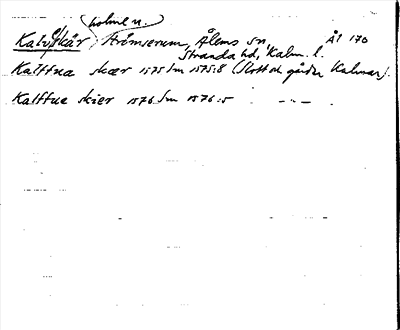 holme n.
Kalvöskär, Strömserum, Ålems sn, Ål 170
Stranda hd, Kalm. l.
Kalffua skær 1575 Sm 1575:8 (Slott och gårdar Kalmar).
Kalffue skier 1576 Sm 1576:5 — " —